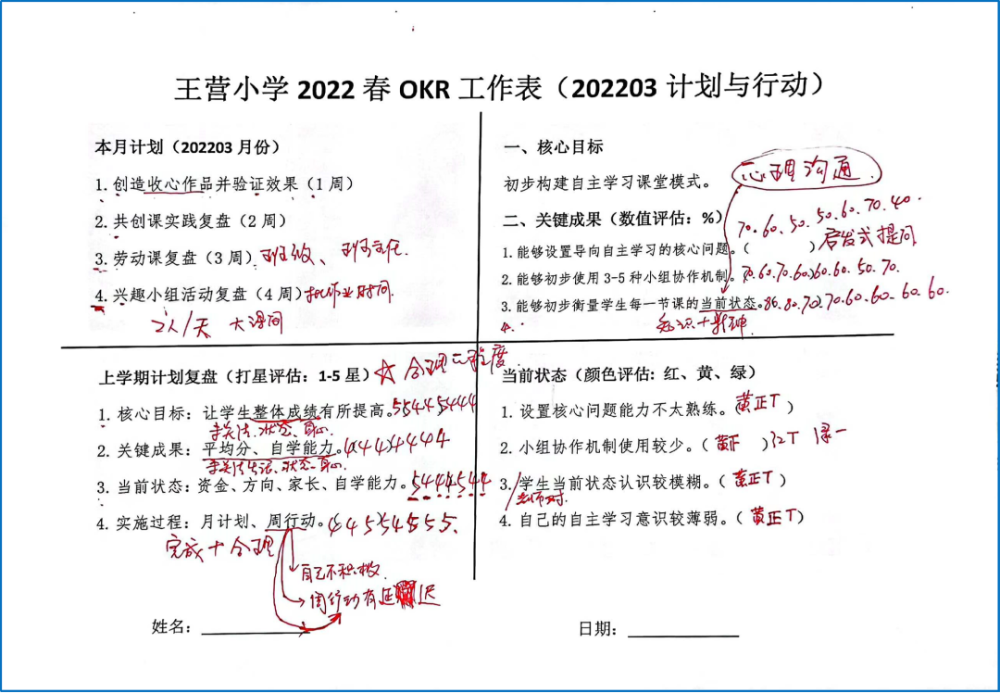 王营小学 2022 春 OKR 工作表（202203 计划与行动）
本月计划（202203 月份）
1. 创造收心作品并验证效果（1 周）
2. 共创课实践复盘（2 周）
3. 劳动课复盘（3 周）班级、班主任.
4. 兴趣小组活动复盘（4 周）
2人/天 大课间
一、核心目标
初步构建自主学习课堂模式。
心理沟通
二、关键成果（数值评估：%）
70.60.50.50.60.70.40.
1. 能够设置导向自主学习的核心问题。（ ）启发式提问
2. 能够初步使用 3-5 种小组协作机制。70.60.70.60.60.60.50.70.
3. 能够初步衡量学生每一节课的当前状态。86.80.70.70.60.60.60.60.
4.
知识+精神
上学期计划复盘（打星评估：1-5 星）☆合理二程度
1. 核心目标：让学生整体成绩有所提高。55445444
2. 关键成果：平均分、自学能力。
3. 当前状态：资金、方向、家长、自学能力。5444544
4. 实施过程：月计划、周行动。
完成+合理
自己不积极.
周行动有延迟
当前状态（颜色评估: 红、黄、绿）
1. 设置核心问题能力不太熟练。（黄正T）
2. 小组协作机制使用较少。（ ）红T
3. 学生当前状态认识较模糊。（黄正T）
4. 自己的自主学习意识较薄弱。（黄正T）
姓名：
日期：